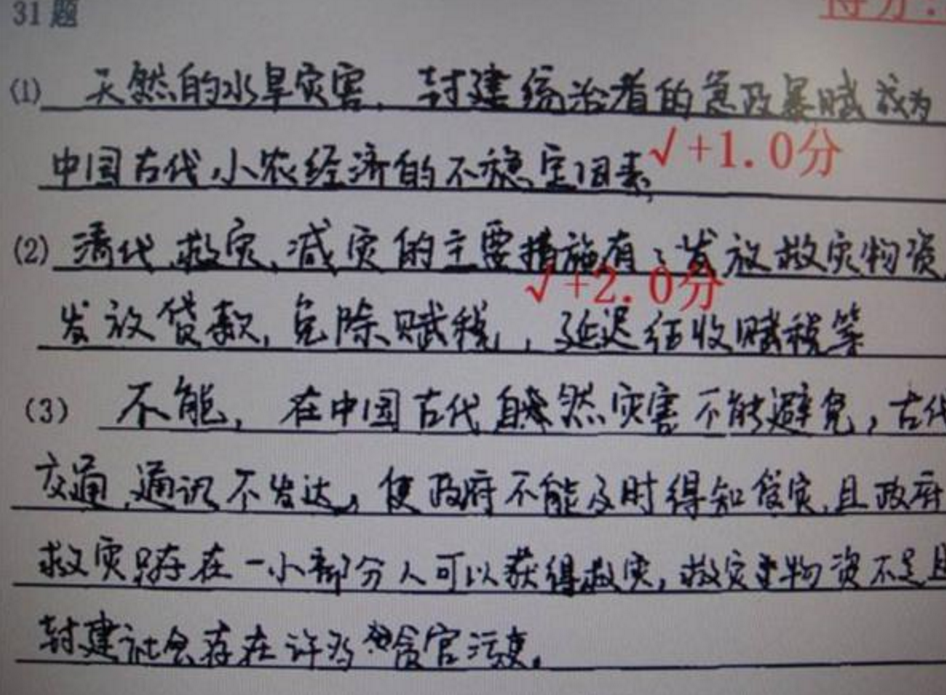 31题
得分:
(1) 天然的水旱灾害,封建统治者的急政暴赋成为
中国古代小农经济的不稳定因素, √+1.0分
(2) 清代救灾、减灾的主要措施有:发放救灾物资
√+2.0分
发放贷款,免除赋税,延迟征收赋税等
(3) 不能,在中国古代自然灾害不能避免,古代
交通、通讯不发达,使政府不能及时得知灾,且政府
救灾只存在一小部分人可以获得救灾,救灾物资不足且
封建社会存在许多贪官污吏。